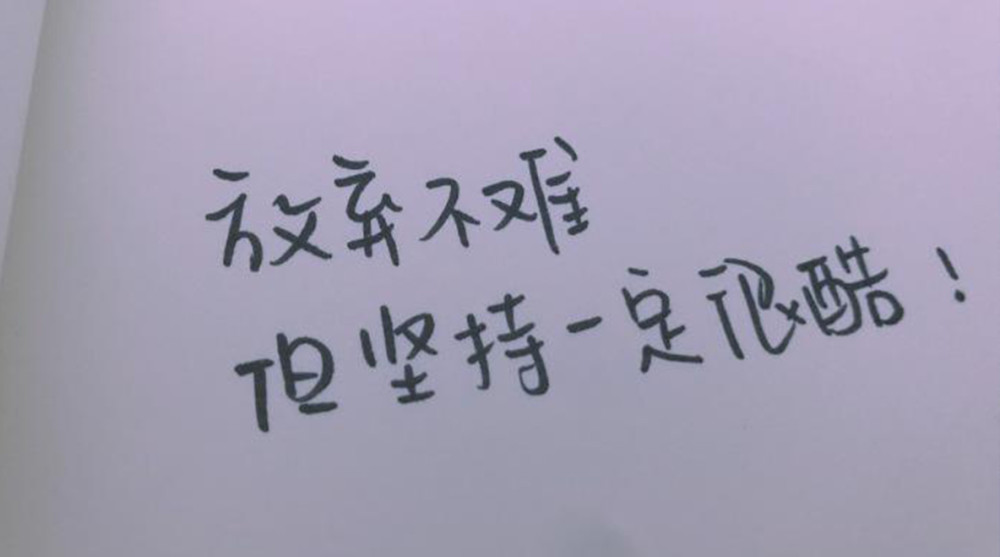 放弃不难
但坚持一定很酷！